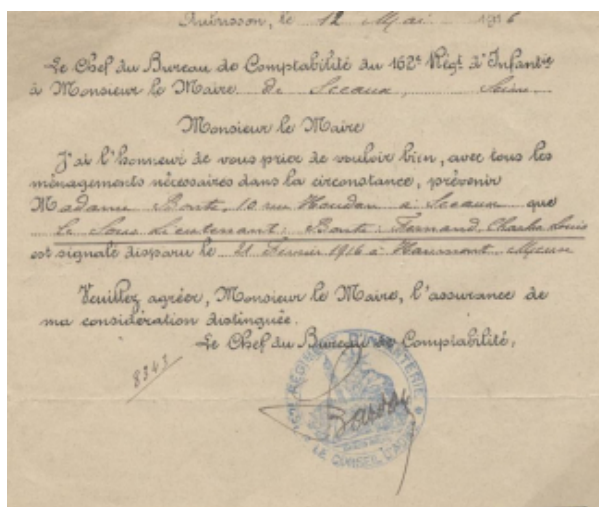 Aubusson, le 12 Mai 1916
Le Chef du Bureau de Comptabilité du 162e Régt d'Infantie
à Monsieur le Maire de Sceaux Seine
Monsieur le Maire
J'ai l'honneur de vous prier de vouloir bien, avec tous les
ménagements nécessaires dans la circonstance, prévenir
Madame Bonte, 10 rue Houdan à Sceaux que
le Sous Lieutenant : Bonte : Fernand, Charles Louis
est signalé disparu le 21 Février 1916 à Haumont, Meuse
Veuillez agréer, Monsieur le Maire, l'assurance de
ma considération distinguée.
Le Chef du Bureau de Comptabilité,
8343
RÉGIMENT D'INFANTERIE
LE CONSEIL D'ADM